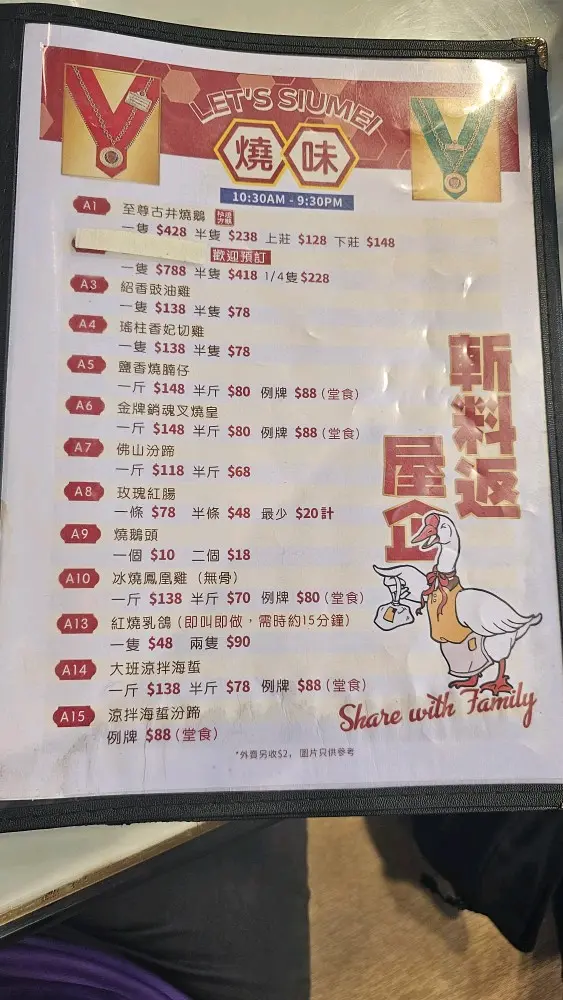 LET'S SIUMEI
燒味
10:30AM - 9:30PM
A1 至尊古井燒鵝
一隻 $428 半隻 $238 上莊 $128 下莊 $148
歡迎預訂
一隻 $788 半隻 $418 1/4隻 $228
A3 紹香豉油雞
一隻 $138 半隻 $78
A4 瑤柱香妃切雞
一隻 $138 半隻 $78
A5 鹽香燒腩仔
一斤 $148 半斤 $80 例牌 $88 (堂食)
A6 金牌銷魂叉燒皇
一斤 $148 半斤 $80 例牌 $88 (堂食)
A7 佛山汾蹄
一斤 $118 半斤 $68
A8 玫瑰紅腸
一條 $78 半條 $48 最少 $20計
A9 燒鵝頭
一個 $10 二個 $18
A10 冰燒鳳凰雞 (無骨)
一斤 $138 半斤 $70 例牌 $80 (堂食)
A13 紅燒乳鴿 (即叫即做，需時約15分鐘)
一隻 $48 兩隻 $90
A14 大班涼拌海蜇
一斤 $138 半斤 $78 例牌 $88 (堂食)
A15 涼拌海蜇汾蹄
例牌 $88 (堂食)
*外賣另收$2， 圖片只供參考
斬料返
屋企
Share with Family